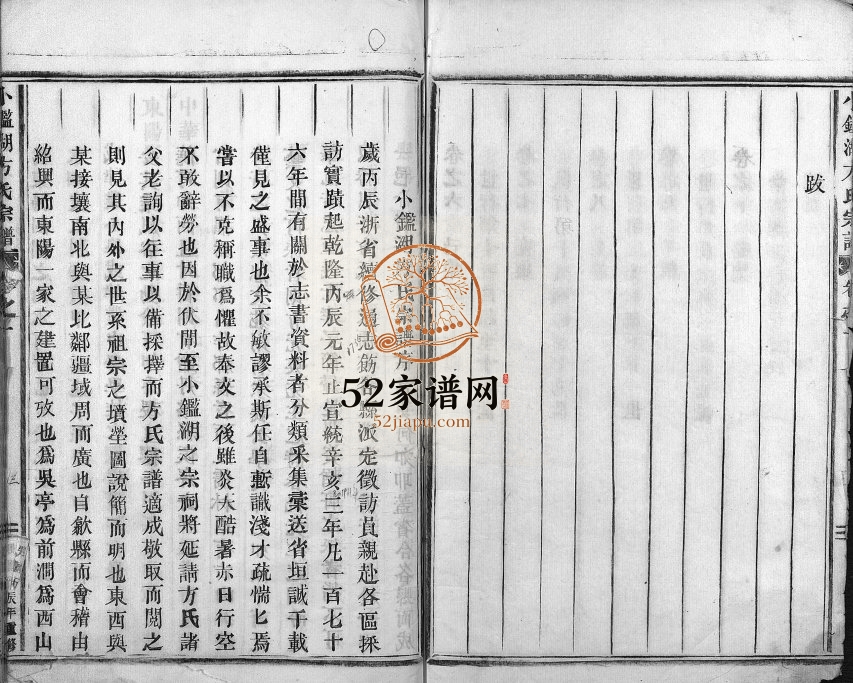 跋
小鑑湖方氏宗譜序
歲丙辰浙省續修通志飭各縣派定徵訪員親赴各區採
訪實蹟起乾隆丙辰元年止宣統辛亥三年凡一百七十
六年間有關於志書資料者分類采集彙送省垣誠千載
僅見之盛事也余不敏謬承斯任自慚識淺才疏惴匕焉
嘗以不克稱職爲懼故奉文之後雖炎天酷暑赤日行空
不敢辭勞也因於伏間至小鑑湖之宗祠將延請方氏諸
父老詢以往事以備採擇而方氏宗譜適成敬取而閱之
則見其內外之世系祖宗之墳塋圖說簡而明也東西與
某接壤南北與某比鄰疆域周而廣也自歙縣而會稽由
紹興而東陽一家之建置可攷也爲吳亭爲前澗爲西山
小鑑湖方氏宗譜
52家谱网
52jiapu.com